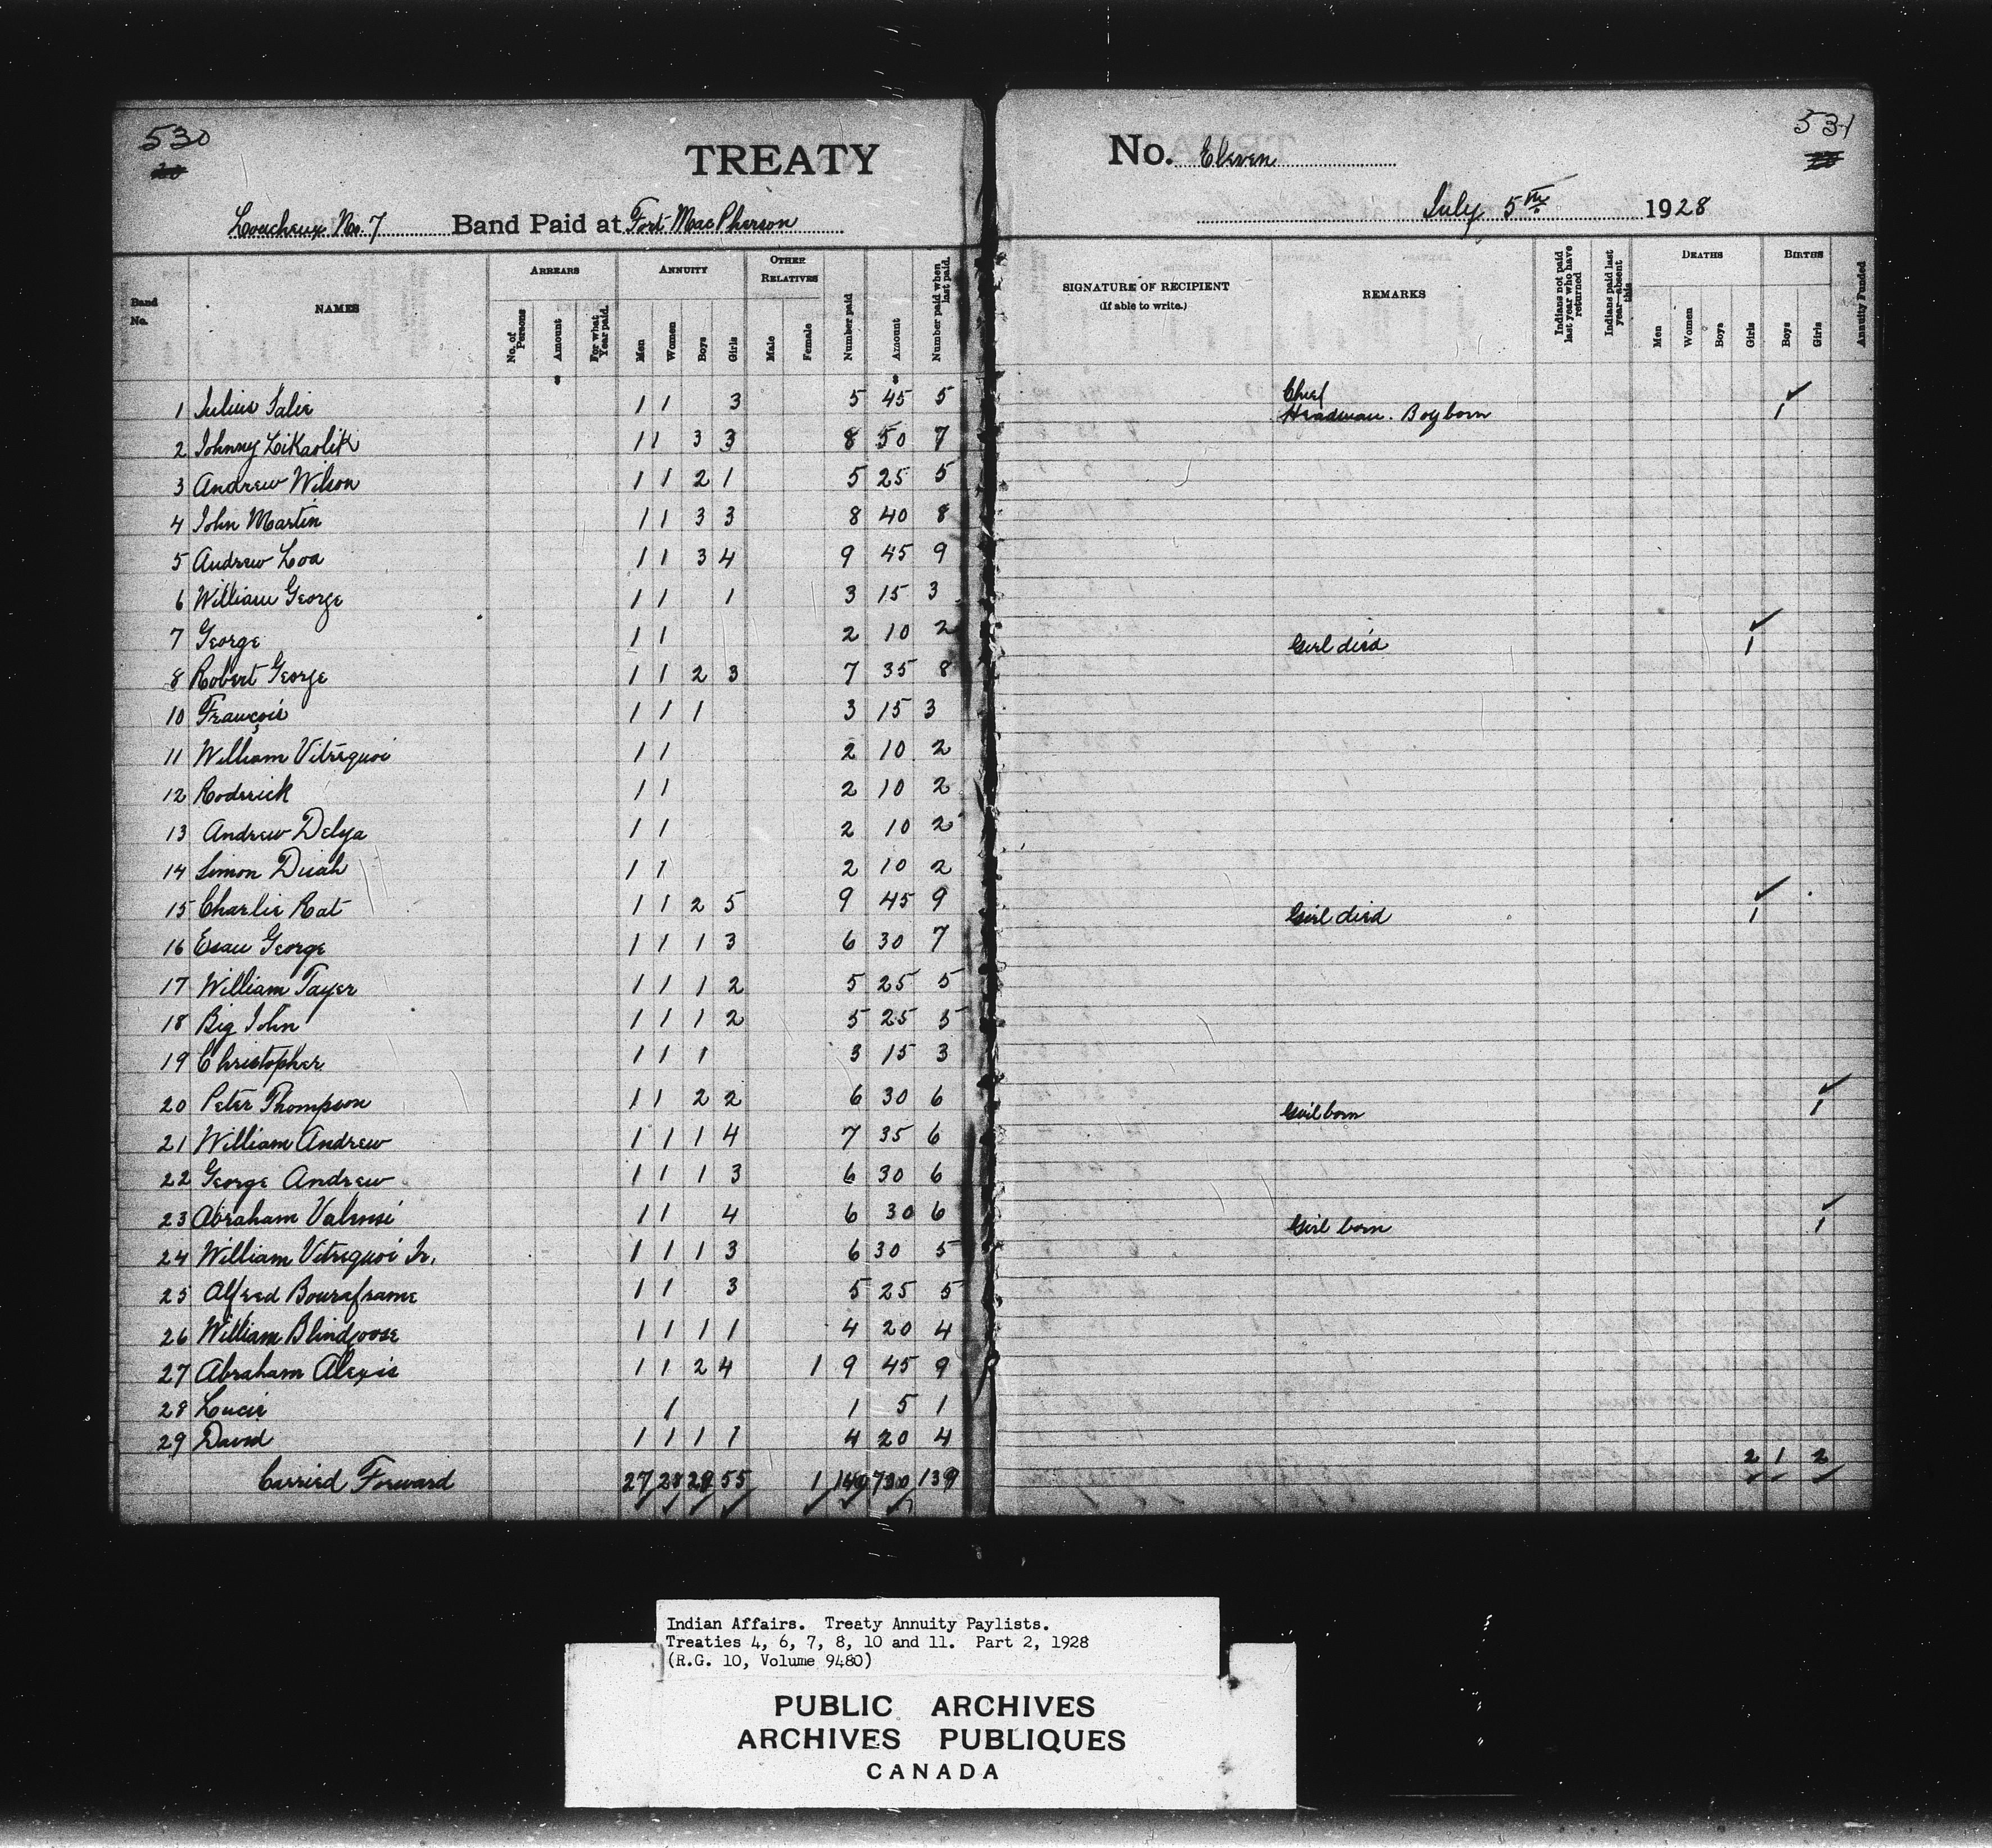 530
531
TREATY No. Eleven
Loucheux No. 7 Band Paid at Fort MacPherson July 5th 1928
Band No.
NAMES
ARREARS
No. of Persons
Amount
For what Year paid.
ANNUITY
Men
Women
Boys
Girls
OTHER RELATIVES
Male
Female
Number paid
Amount
Number paid when last paid.
SIGNATURE OF RECIPIENT
(If able to write.)
REMARKS
Indians not paid last year who have returned
Indians paid last year—absent this
DEATHS
Men
Women
Boys
Girls
BIRTHS
Boys
Girls
Annuity Funded
$ $
1 Julius Salie 1 1 3 5 45 5 Chief Headman. Boy born 1
2 Johnny Kikaolik 1 1 3 3 8 50 7
3 Andrew Wilson 1 1 2 1 5 25 5
4 John Martin 1 1 3 3 8 40 8
5 Andrew Loa 1 1 3 4 9 45 9
6 William George 1 1 1 3 15 3
7 George 1 1 2 10 2 Girl died 1
8 Robert George 1 1 2 3 7 35 8
10 François 1 1 1 3 15 3
11 William Vitrequoi 1 1 2 10 2
12 Roderick 1 1 2 10 2
13 Andrew Delya 1 1 2 10 2
14 Simon Diah 1 1 2 10 2
15 Charlie Rat 1 1 2 5 9 45 9 Girl died 1
16 Esau George 1 1 1 3 6 30 7
17 William Tayer 1 1 1 2 5 25 5
18 Big John 1 1 1 2 5 25 5
19 Christopher 1 1 1 3 15 3
20 Peter Thompson 1 1 2 2 6 30 6 Girl born 1
21 William Andrew 1 1 1 4 7 35 6
22 George Andrew 1 1 1 3 6 30 6
23 Abraham Valinsi 1 1 4 6 30 6 Girl born 1
24 William Vitrequoi Jr. 1 1 1 3 6 30 5
25 Alfred Bouraframe 1 1 3 5 25 5
26 William Blindgoose 1 1 1 1 4 20 4
27 Abraham Alexis 1 1 2 4 1 9 45 9
28 Lucie 1 1 5 1
29 David 1 1 1 1 4 20 4
Carried Forward 27 28 29 55 1 140 730 139 2 1 2
Indian Affairs. Treaty Annuity Paylists.
Treaties 4, 6, 7, 8, 10 and 11. Part 2, 1928
(R.G. 10, Volume 9480)
PUBLIC ARCHIVES
ARCHIVES PUBLIQUES
CANADA